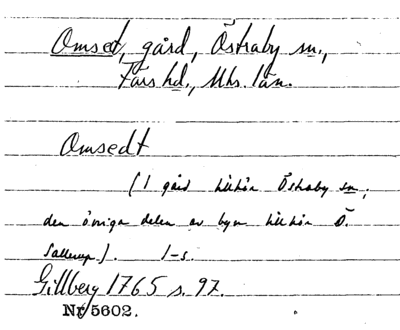 Omset, gård, Östraby sn.,
Färs hd., Mhs. län.
Omsedt
(1 gård tillhör Östraby sn;
den övriga delen av byn tillhör Ö.
Sallerup). 1-s.
Gillberg 1765 s. 97.
Ny 5602.